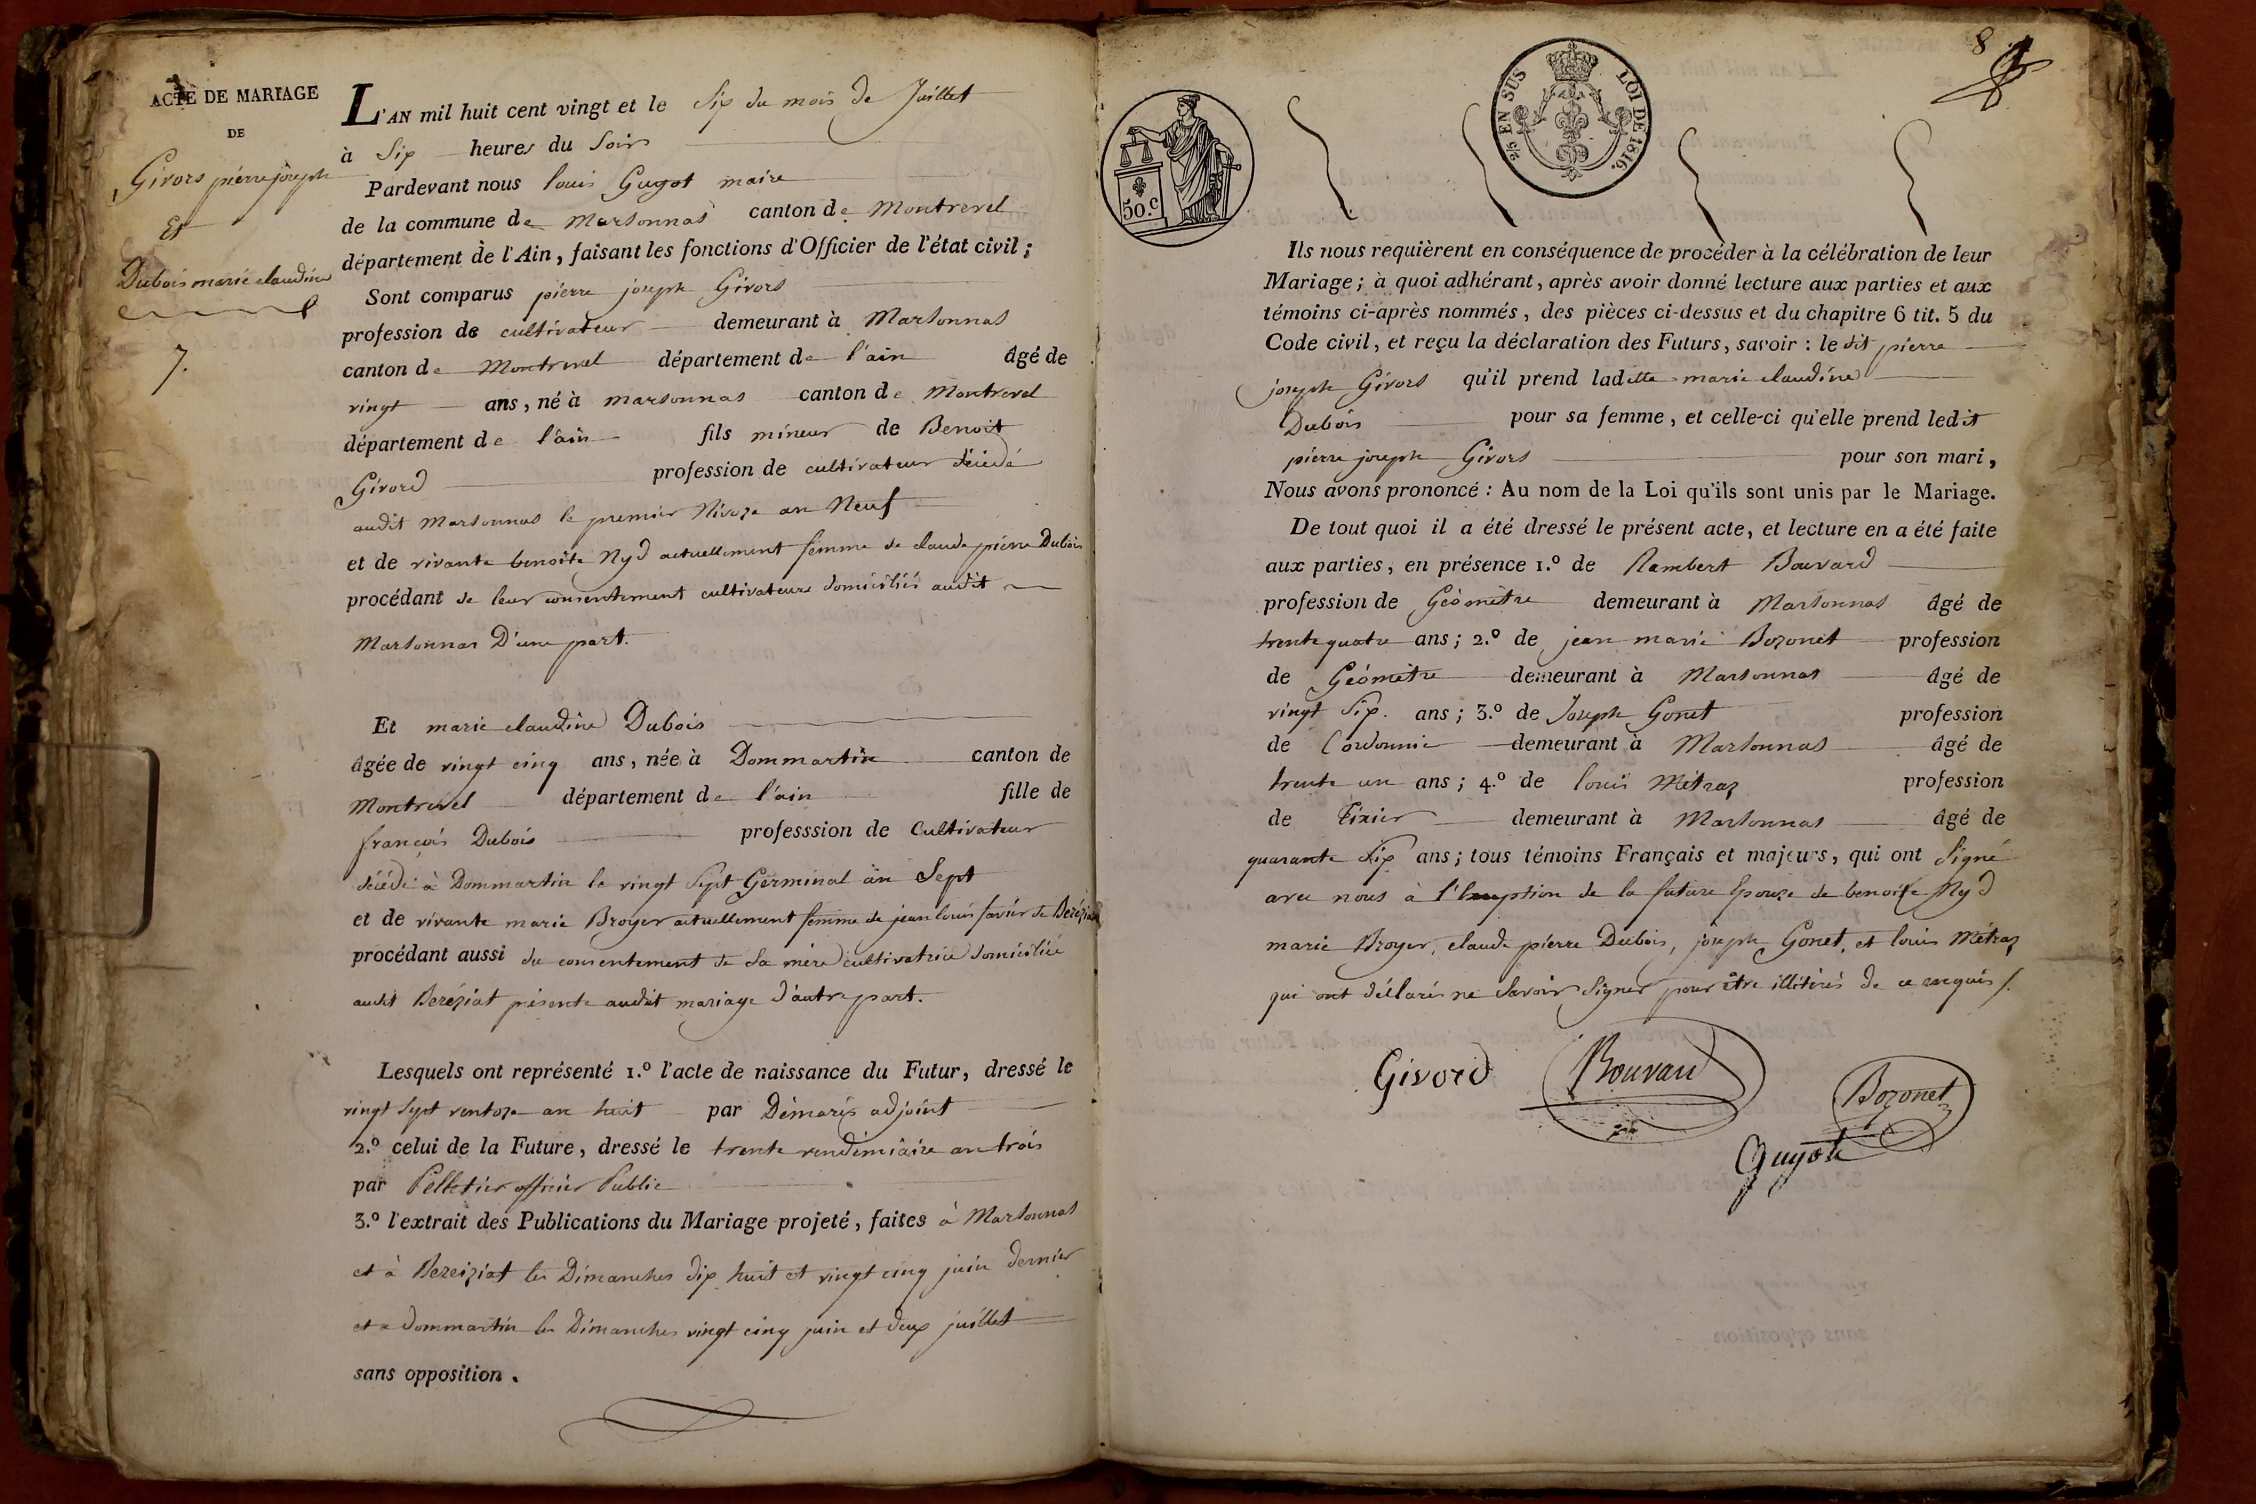 ACTE DE MARIAGE
DE
Givors pierre joseph
Et
Dubois marie claudine
7.
L'AN mil huit cent vingt et le Six du mois de Juillet
à Six heures du Soir
Pardevant nous louis Guyot maire
de la commune de Marsonnas canton de Montrevel
département de l'Ain, faisant les fonctions d'Officier de l'état civil;
Sont comparus pierre joseph Givors
profession de cultivateur demeurant à Marsonnas
canton de Montrevel département de l'ain âgé de
vingt ans, né à marsonnas canton de Montrevel
département de l'ain fils mineur de Benoit
Givord profession de cultivateur décédé
audit Marsonnas le premier Nivoze an Neuf
et de vivante benoite Nyd actuellement femme de claude pierre Dubois
procédant de leur consentement cultivateurs domiciliés audit
Marsonnas D'une part.
Et marie claudine Dubois
âgée de vingt cinq ans, née à Dommartin canton de
Montrevel département de l'ain fille de
françois Dubois professsion de Cultivateur
décédé à Dommartin le vingt Sept Germinal an Sept
et de vivante marie Broyer actuellement femme de jean louis favier de Beréziat
procédant aussi du consentement de Sa mère cultivatrice domiciliée
audit Beréziat présente audit mariage d'autre part.
Lesquels ont représenté 1.º l'acte de naissance du Futur, dressé le
vingt Sept ventoze an huit par Démaris adjoint
2.º celui de la Future, dressé le trente vendémiaire an trois
par Pelletier officier Public
3.º l'extrait des Publications du Mariage projeté, faites à Marsonnas
et à Bereiziat les Dimanches dix huit et vingt cinq juin dernier
et a dommartin les Dimanches vingt cinq juin et deux juillet
sans opposition.
8
50.c
2/5 EN SUS
LOI DE 1816.
Ils nous requièrent en conséquence de procéder à la célébration de leur
Mariage; à quoi adhérant, après avoir donné lecture aux parties et aux
témoins ci-après nommés, des pièces ci-dessus et du chapitre 6 tit. 5 du
Code civil, et reçu la déclaration des Futurs, savoir: le dit pierre
joseph Givors qu'il prend ladette marie claudine
Dubois pour sa femme, et celle-ci qu'elle prend ledit
pierre joseph Givors pour son mari,
Nous avons prononcé: Au nom de la Loi qu'ils sont unis par le Mariage.
De tout quoi il a été dressé le présent acte, et lecture en a été faite
aux parties, en présence 1.º de Rambert Bouvard
profession de Géomètre demeurant à Marsonnas âgé de
trente quatre ans; 2.º de jean marie Bozonet profession
de Géomètre demeurant à Marsonnas âgé de
vingt Six. ans; 3.º de Joseph Gonet profession
de Cordonnie demeurant à Marsonnas âgé de
trente un ans; 4.º de louis Métraz profession
de Tixier demeurant à Marsonnas âgé de
quarante Six ans; tous témoins Français et majeurs, qui ont Signé
avec nous à l'Exeption de la future Epouze de benoite Nyd
marie Broyer, claude pierre Dubois, joseph Gonet, et louis Métraz
qui ont déclarés ne Savoir Signer pour être illitérés de ce requis
Givord
Bouvard
Bozonet
Guyot